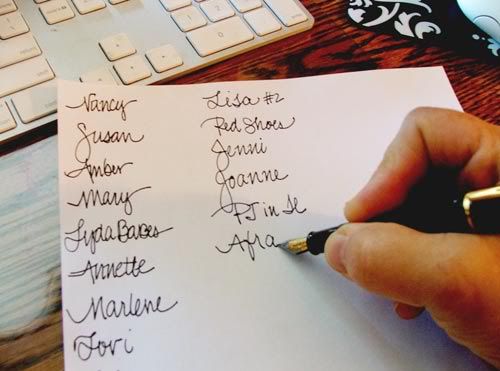 Nancy
Susan
Amber
Mary
Lyda Babes
Annette
Marlene
Tori
Lisa #2
Red Shoes
Jenni
Joanne
PJ in Le
Afra